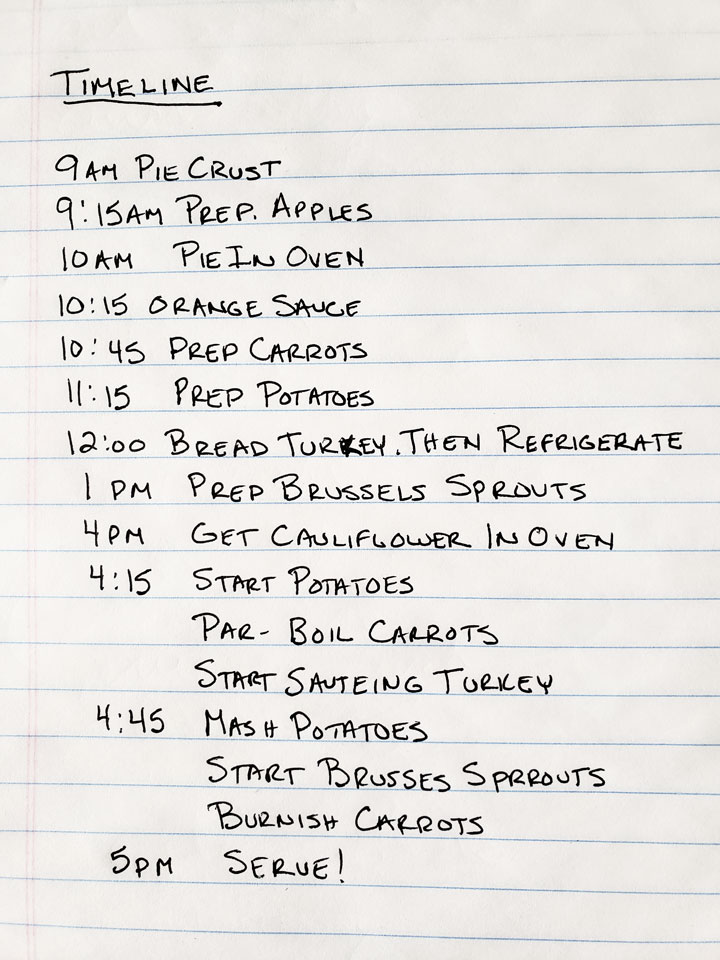 TIMELINE
9AM PIE CRUST
9:15AM PREP. APPLES
10AM PIE IN OVEN
10:15 ORANGE SAUCE
10:45 PREP CARROTS
11:15 PREP POTATOES
12:00 BREAD TURKEY. THEN REFRIGERATE
1 PM PREP BRUSSELS SPROUTS
4PM GET CAULIFLOWER IN OVEN
4:15 START POTATOES
PAR- BOIL CARROTS
START SAUTEING TURKEY
4:45 MASH POTATOES
START BRUSSES SPRROUTS
BURNISH CARROTS
5PM SERVE!